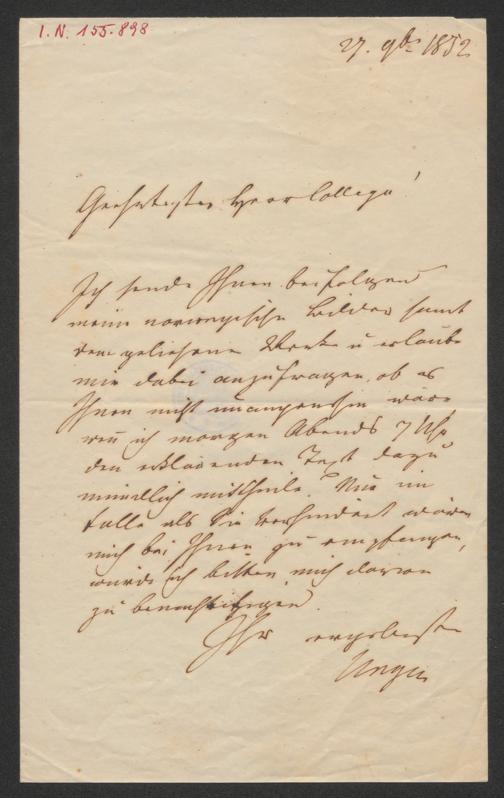 I.N. 155.898
27. 9br 1852
Geehrtester Herr Collega!
Ich sende Ihnen beifolgend
meine norwegische Bilder samt
dem geliehenen Werke u erlaube
mir dabei anzufragen, ob es
Ihnen nicht unangenehm wäre
wenn ich morgen Abends 7 Uhr
den erklärenden Text dazu
mündlich mittheile. Nur im
Falle als Sie verhindert wären
mich bei Ihnen zu empfangen,
würde ich bitten mich davon
zu benachrichtigen.
Ihr ergebenster
Unger